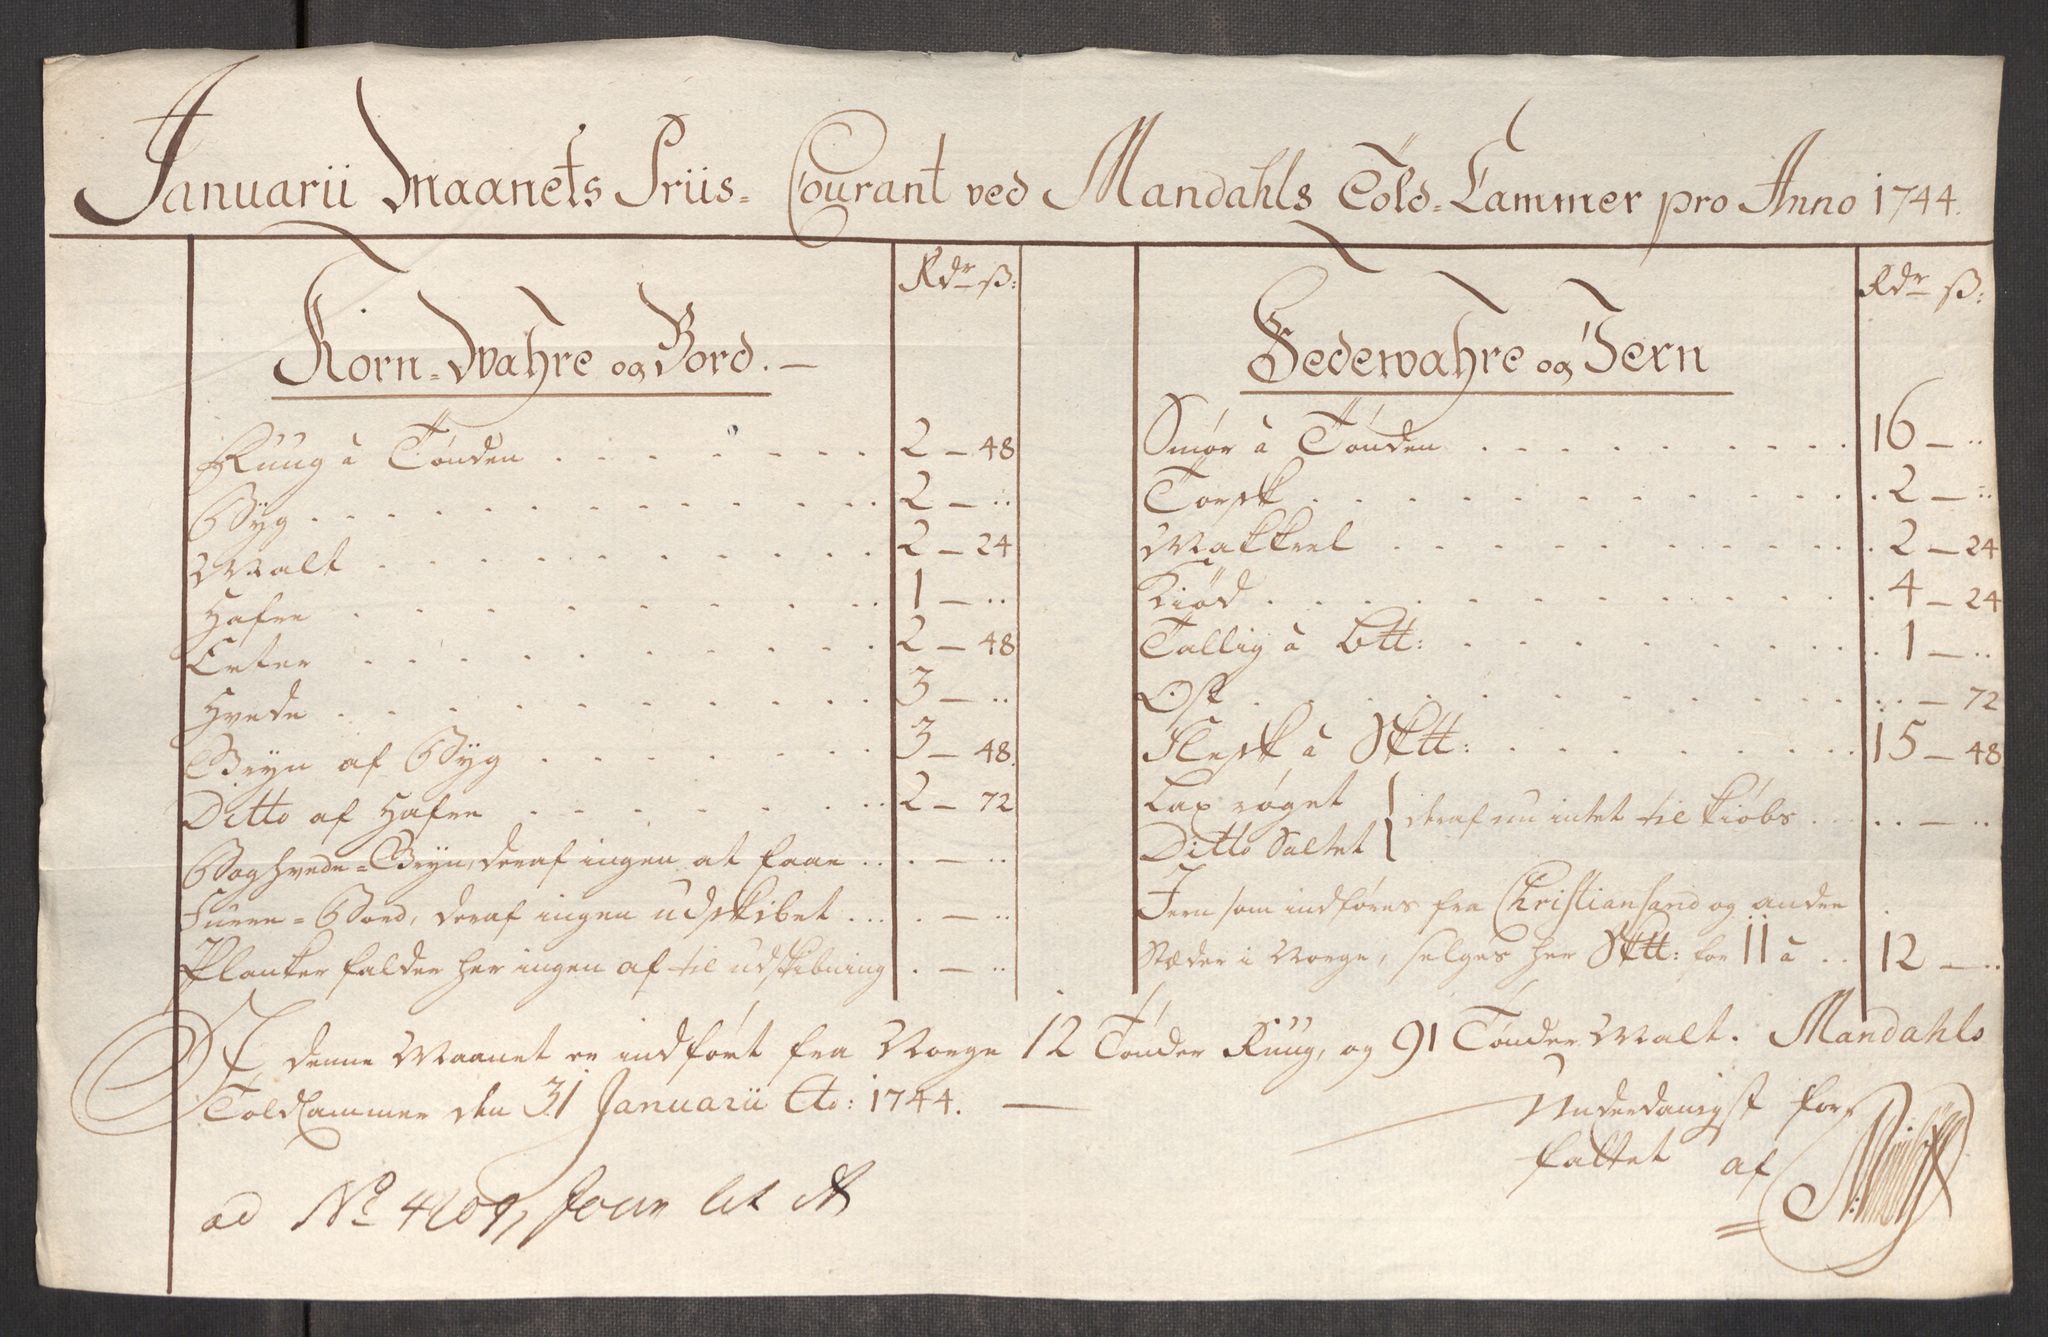 Januarii Maanets Priis-Courant ved Mandahls Told-Cammer pro Anno 1744.
Korn-Wahre og Bord. —
Rdr ß:
Ruug à Tønden . . . . . . . 2 — 48
Byg . . . . . . . . . . . . . 2 — ..
Malt . . . . . . . . . . . . 2 — 24
Hafre . . . . . . . . . . . . 1 — ..
Erter . . . . . . . . . . . . 2 — 48
Hvede . . . . . . . . . . . . 3 — ..
Gryn af Byg . . . . . . . 3 — 48.
Ditto af Hafre . . . . . . . 2 — 72
Boghvede-Gryn, deraf ingen at faae . . . — ..
Furre-Bord, deraf ingen udskibet . . . . — ..
Planker falder her ingen af til udskibning . — ..
Fedewahre og Jern
Rdr ß:
Smør à Tønden . . . . . . . . . 16 — ..
Torsk . . . . . . . . . . . . . 2 — ..
Makkrel . . . . . . . . . . . 2 — 24
Kiød . . . . . . . . . . . . . 4 — 24
Tallig à Btt: . . . . . . . . . 1 — ..
Ost . . . . . . . . . . . . . .. — 72
Flesk à Sktt: . . . . . . . . 15 — 48
Lax røget
Ditto Saltet } deraf nu intet til kiøbs . . . . . — ..
Jern som indføres fra Christiansand og andre
Stæder i Norge, selges her Sktt: for 11 à . . 12 — ..
I denne Maanet er indført fra Norge 12 Tønder Ruug, og 91 Tønder Malt. Mandahls
ToldCammer den 31 Januarii Ao: 1744. —
Underdanigst for-
fattet af
ad No 4209, Jour lit A